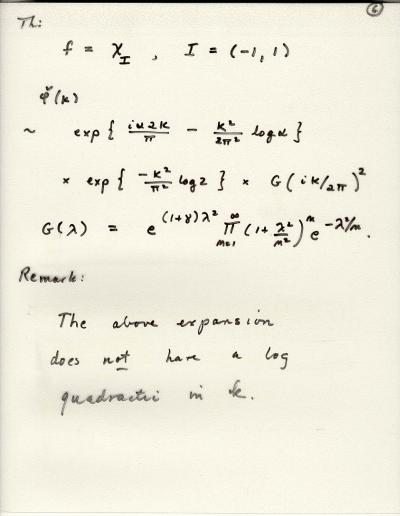 ⑥
Th:
f = χ_I , I = (-1, 1)
φ̌(k)
~ exp{ iα2k/π - k²/2π² log α }
× exp{ -k²/π² log 2 } × G(ik/2π)²
G(λ) = e^{(1+γ)λ²} ∏_{m=1}^{∞} (1 + λ²/m²)^m e^{-λ²/m}.
Remark:
The above expansion
does not have a log
quadractic in k.